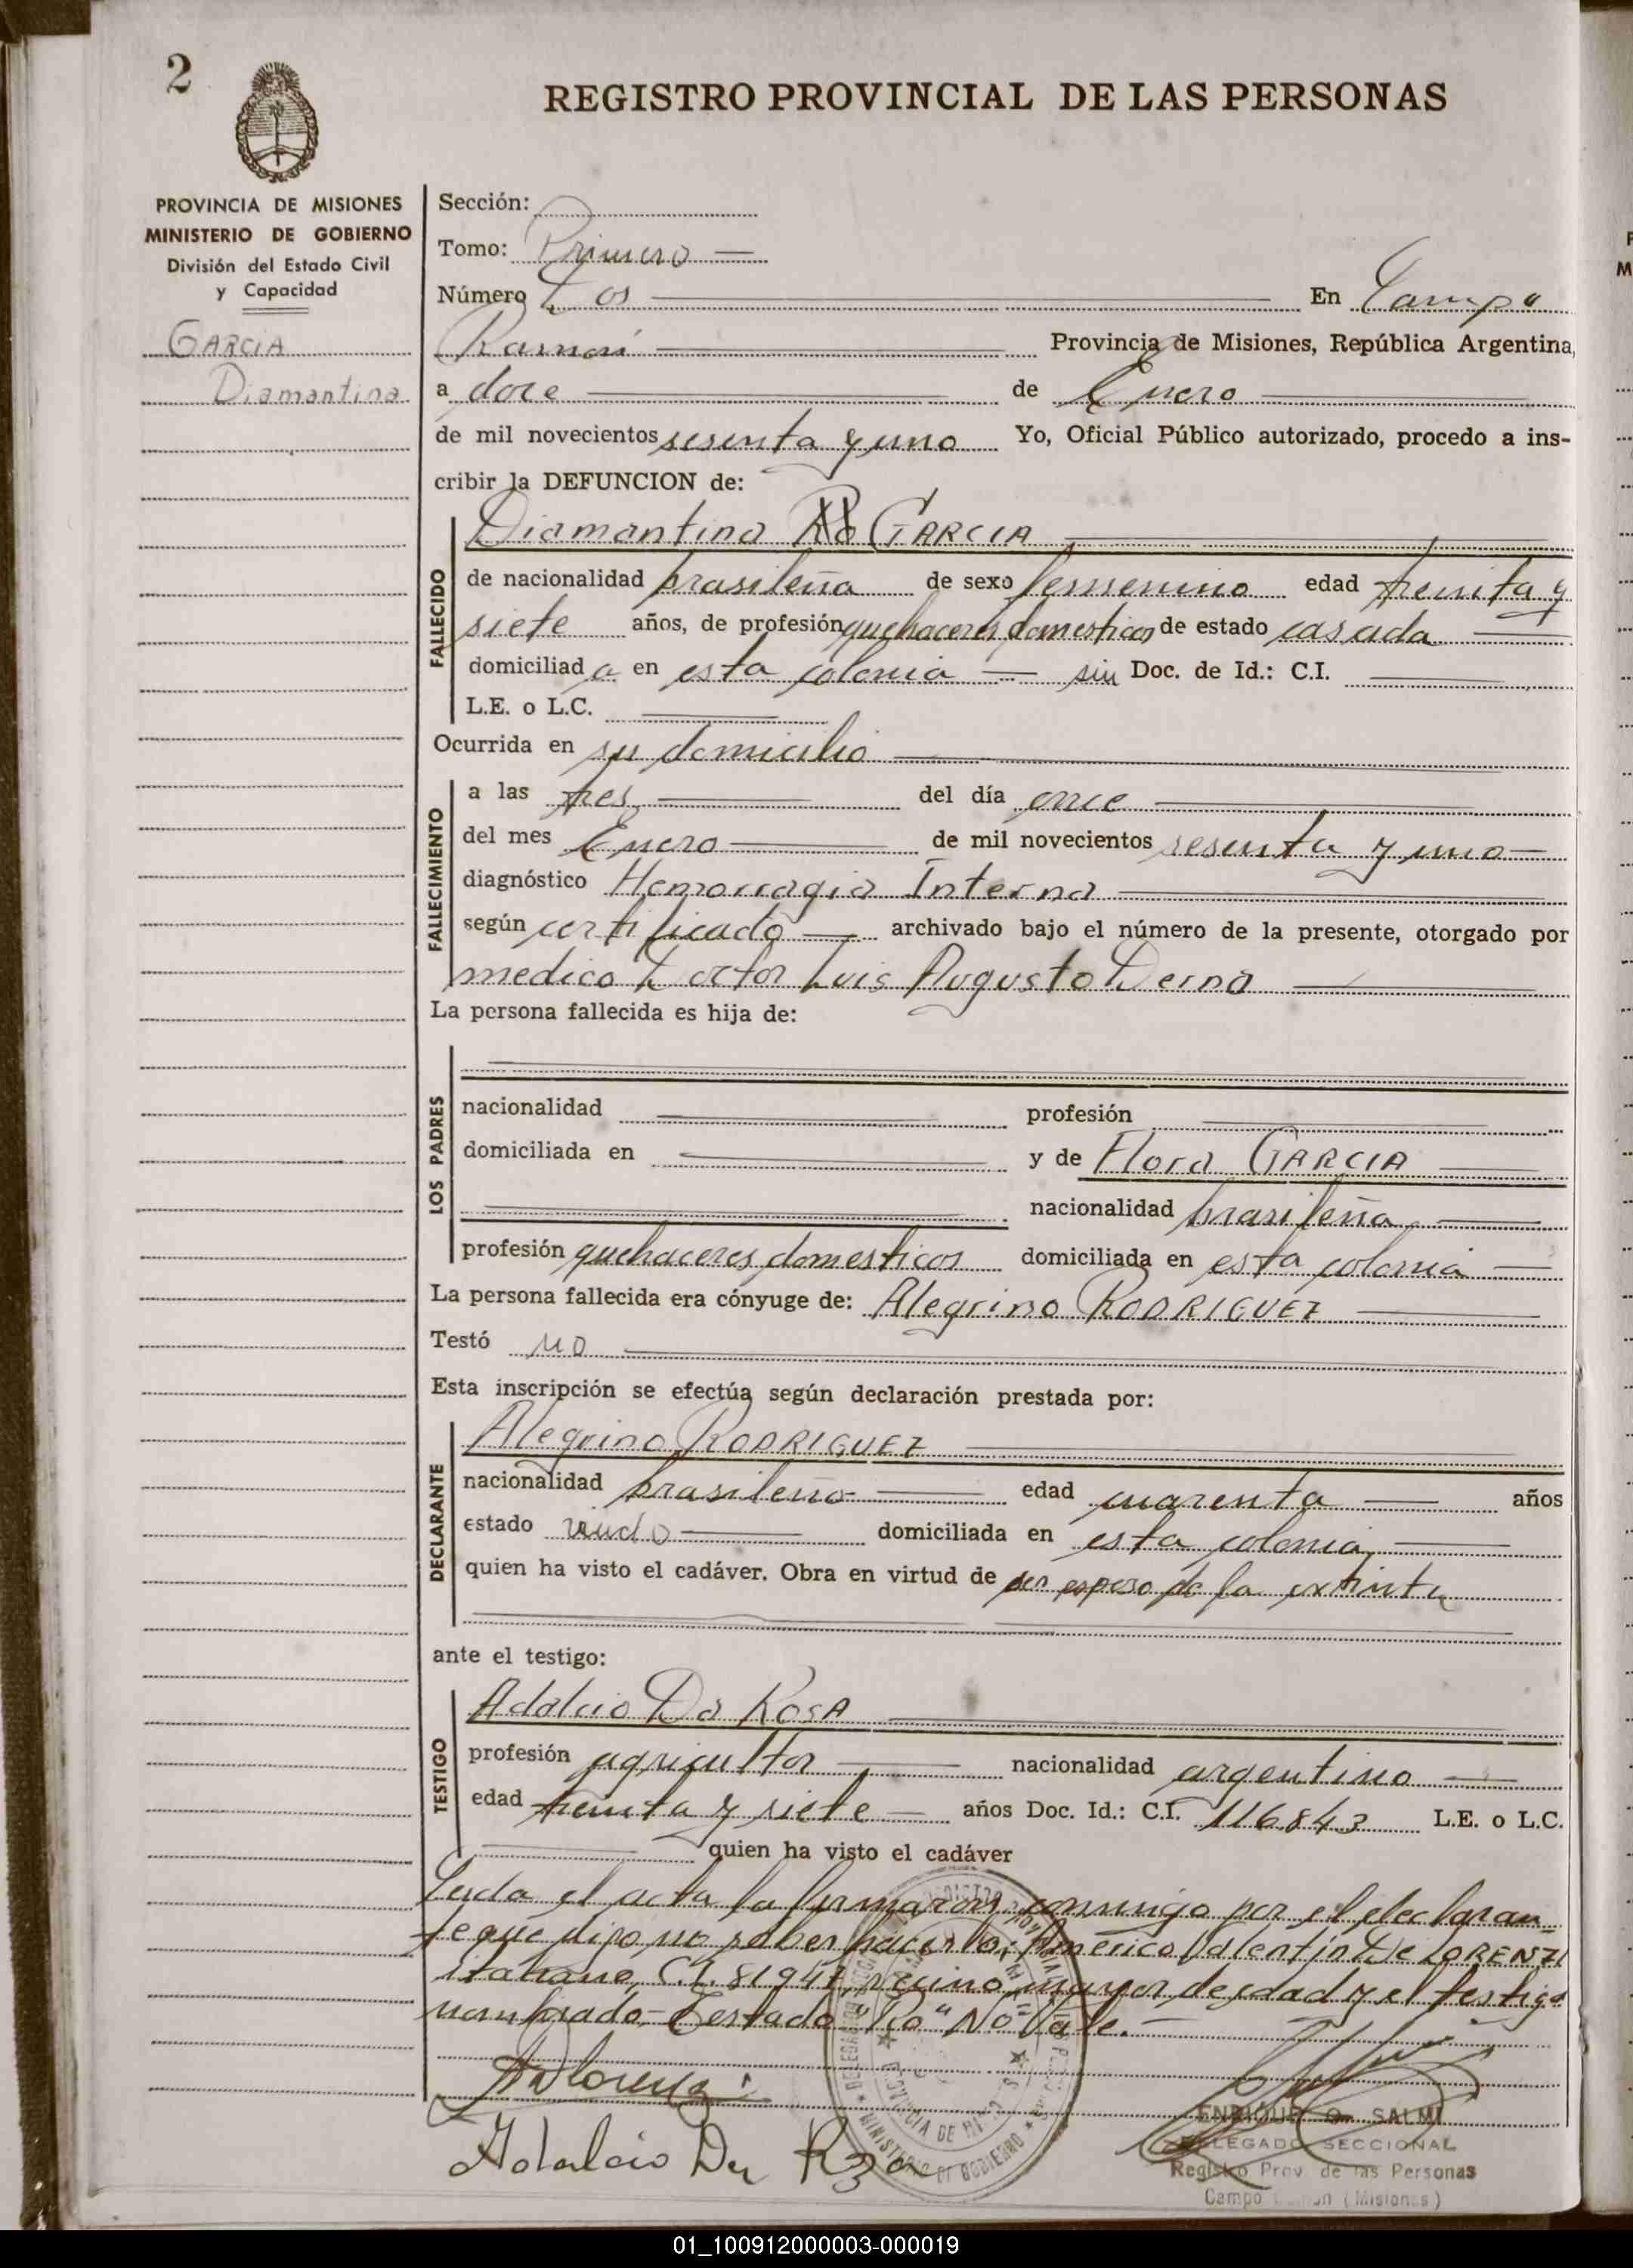 2
REGISTRO PROVINCIAL DE LAS PERSONAS
PROVINCIA DE MISIONES
MINISTERIO DE GOBIERNO
División del Estado Civil
y Capacidad
GARCIA
Diamantina
Sección:
Tomo: Primero
Número Dos En Campo
Ramón Provincia de Misiones, República Argentina,
a doce de Enero
de mil novecientos sesenta y uno Yo, Oficial Público autorizado, procedo a ins-
cribir la DEFUNCION de:
FALLECIDO
Diamantina Ro GARCIA
de nacionalidad brasileña de sexo femenino edad treinta y
siete años, de profesión quehaceres domesticos de estado casada
domiciliad a en esta colonia sin Doc. de Id.: C.I.
L.E. o L.C.
Ocurrida en su domicilio
FALLECIMIENTO
a las tres del día once
del mes Enero de mil novecientos sesenta y uno
diagnóstico Hemorragia Interna
según certificado archivado bajo el número de la presente, otorgado por
medico Doctor Luis Augusto Derna
La persona fallecida es hija de:
LOS PADRES
nacionalidad profesión
domiciliada en y de Flora GARCIA
nacionalidad brasileña
profesión quehaceres domesticos domiciliada en esta colonia
La persona fallecida era cónyuge de: Alegrino RODRIGUEZ
Testó no
Esta inscripción se efectúa según declaración prestada por:
DECLARANTE
Alegrino RODRIGUEZ
nacionalidad brasileño edad cuarenta años
estado viudo domiciliada en esta colonia
quien ha visto el cadáver. Obra en virtud de ser esposo de la extinta
ante el testigo:
TESTIGO
Adalcio Da ROSA
profesión agricultor nacionalidad argentino
edad treinta y siete años Doc. Id.: C.I. 116843 L.E. o L.C.
quien ha visto el cadáver
Leida el acta la firmaron conmigo por el declaran=
te que dijo no saber hacerlo; Américo Valentín De LORENZI
italiano, C.I. 81947, vecino mayor de edad y el testigo
nombrado - Testado "Ro" No Vale.
Adalcio Da Roza
ENRIQUE O. SALMI
DELEGADO SECCIONAL
Registro Prov. de las Personas
Campo Ramon (Misiones)
PROVINCIA DE MISIONES
MINISTERIO DE GOBIERNO
01_100912000003-000019